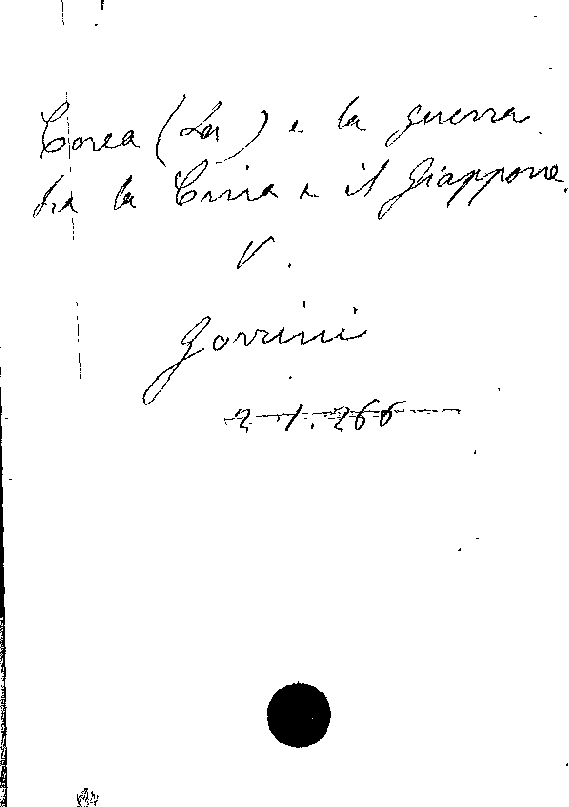 Corea (La) e la guerra
fra la Cina e il Giappone.
V.
Gorrini
2. 1. 266